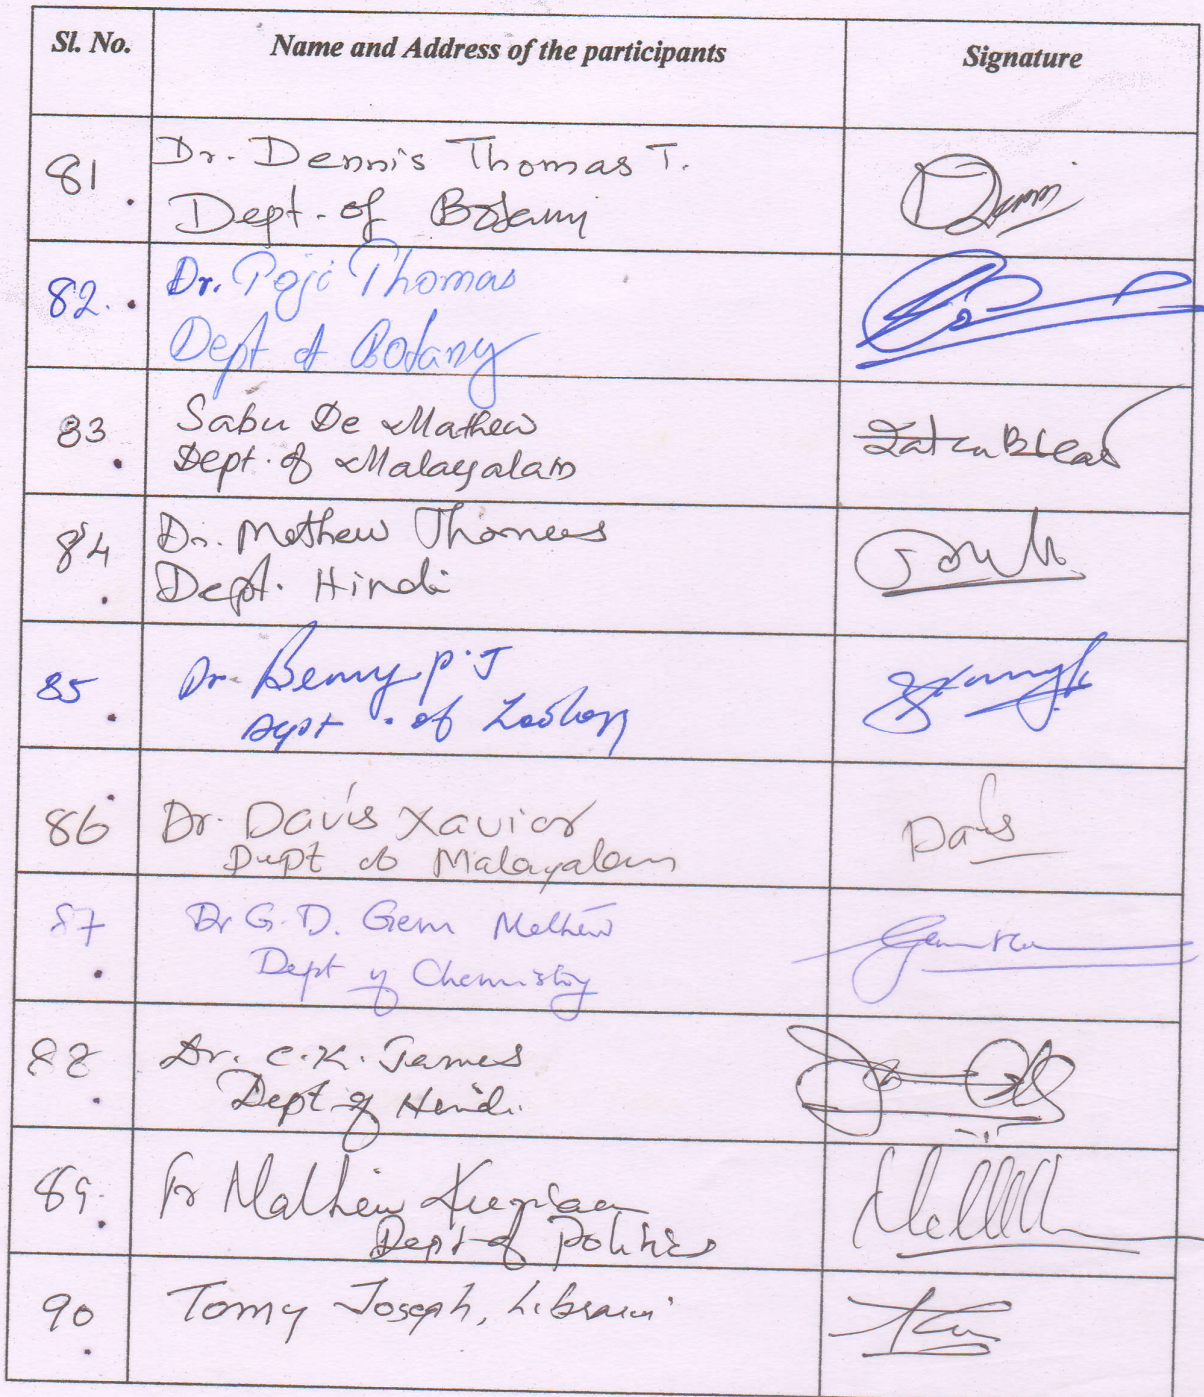 Sl. No. Name and Address of the participants Signature
81 Dr. Dennis Thomas T.
Dept. of Botany
82. Dr. Poji Thomas
Dept of Botany
83 Sabu De Mathew
Dept. of Malayalam
84 Dr. Mathew Thomas
Dept. Hindi
85 Dr. Benny P.J
Dept. of Zoology
86 Dr. Davis Xavier
Dept of Malayalam
Davis
87 Dr G. D. Gem Mathew
Dept of Chemistry
88 Dr. C.K. James
Dept of Hindi
89. Fr Mathew Kurian
Dept of Politics
90 Tomy Joseph,